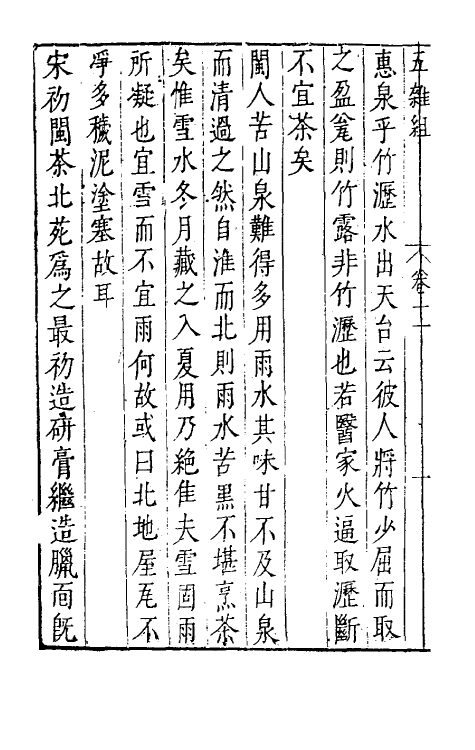 五雜組　卷十一　一
惠泉乎竹瀝水出天台云彼人將竹少屈而取
之盈瓮則竹露非竹瀝也若醫家火逼取瀝斷
不宜茶矣
閩人苦山泉難得多用雨水其味甘不及山泉
而清過之然自淮而北則雨水苦黑不堪烹茶
矣惟雪水冬月藏之入夏用乃絕隹夫雪固雨
所凝也宜雪而不宜雨何故或曰北地屋瓦不
淨多穢泥塗塞故耳
宋初閩茶北苑爲之最初造硏膏繼造臘靣旣